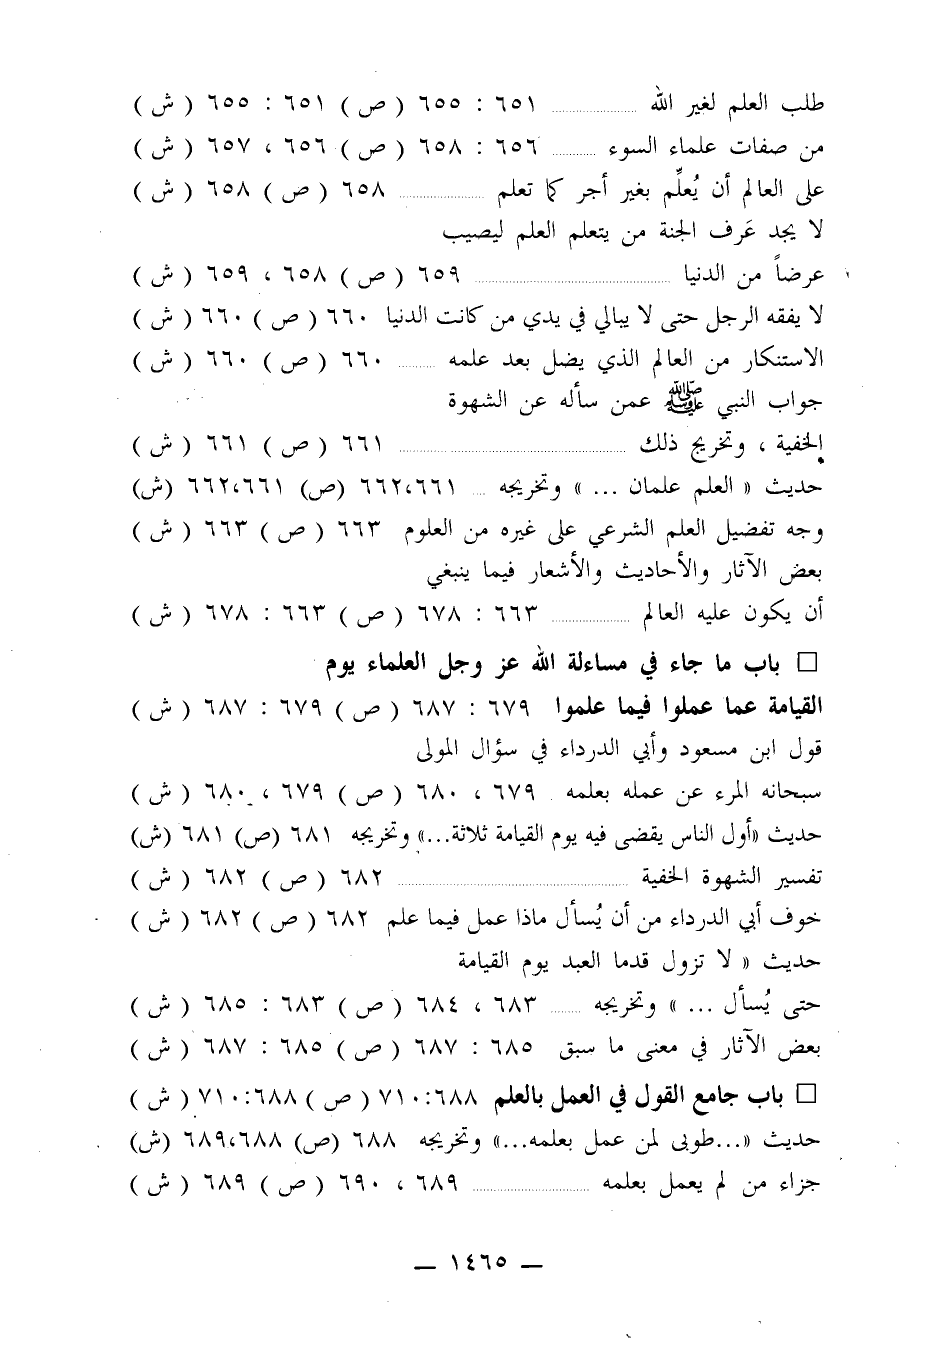 طلب العلم لغير الله ........ ٦٥١ : ٦٥٥ ( ص ) ٦٥١ : ٦٥٥ ( ش )
من صفات علماء السوء ........ ٦٥٦ : ٦٥٨ ( ص ) ٦٥٦ ، ٦٥٧ ( ش )
على العالم أن يُعلِّم بغير أجر كما تعلم ........ ٦٥٨ ( ص ) ٦٥٨ ( ش )
لا يجد عَرف الجنة من يتعلم العلم ليصيب
عرضاً من الدنيا ........ ٦٥٩ ( ص ) ٦٥٨ ، ٦٥٩ ( ش )
لا يفقه الرجل حتى لا يبالي في يدي من كانت الدنيا ٦٦٠ ( ص ) ٦٦٠ ( ش )
الاستنكار من العالم الذي يضل بعد علمه ........ ٦٦٠ ( ص ) ٦٦٠ ( ش )
جواب النبي ﷺ عمن سأله عن الشهوة
الخفية ، وتخريج ذلك ........ ٦٦١ ( ص ) ٦٦١ ( ش )
حديث « العلم علمان ... » وتخريجه .... ٦٦٢،٦٦١ (ص) ٦٦٢،٦٦١ (ش)
وجه تفضيل العلم الشرعي على غيره من العلوم ٦٦٣ ( ص ) ٦٦٣ ( ش )
بعض الآثار والأحاديث والأشعار فيما ينبغي
أن يكون عليه العالم ........ ٦٦٣ : ٦٧٨ ( ص ) ٦٦٣ : ٦٧٨ ( ش )
□ باب ما جاء في مساءلة الله عز وجل العلماء يوم
القيامة عما عملوا فيما علموا ٦٧٩ : ٦٨٧ ( ص ) ٦٧٩ : ٦٨٧ ( ش )
قول ابن مسعود وأبي الدرداء في سؤال المولى
سبحانه المرء عن عمله بعلمه . ٦٧٩ ، ٦٨٠ ( ص ) ٦٧٩ ، ٦٨٠ ( ش )
حديث «أول الناس يقضى فيه يوم القيامة ثلاثة...» وتخريجه ٦٨١ (ص) ٦٨١ (ش)
تفسير الشهوة الخفية ........ ٦٨٢ ( ص ) ٦٨٢ ( ش )
خوف أبي الدرداء من أن يُسأل ماذا عمل فيما علم ٦٨٢ ( ص ) ٦٨٢ ( ش )
حديث « لا تزول قدما العبد يوم القيامة
حتى يُسأل ... » وتخريجه ........ ٦٨٣ ، ٦٨٤ ( ص ) ٦٨٣ : ٦٨٥ ( ش )
بعض الآثار في معنى ما سبق ٦٨٥ : ٦٨٧ ( ص ) ٦٨٥ : ٦٨٧ ( ش )
□ باب جامع القول في العمل بالعلم ٦٨٨:٧١٠ ( ص ) ٦٨٨:٧١٠ ( ش )
حديث «...طوبى لمن عمل بعلمه...» وتخريجه ٦٨٨ (ص) ٦٨٩،٦٨٨ (ش)
جزاء من لم يعمل بعلمه ........ ٦٨٩ ، ٦٩٠ ( ص ) ٦٨٩ ( ش )
— ١٤٦٥ —